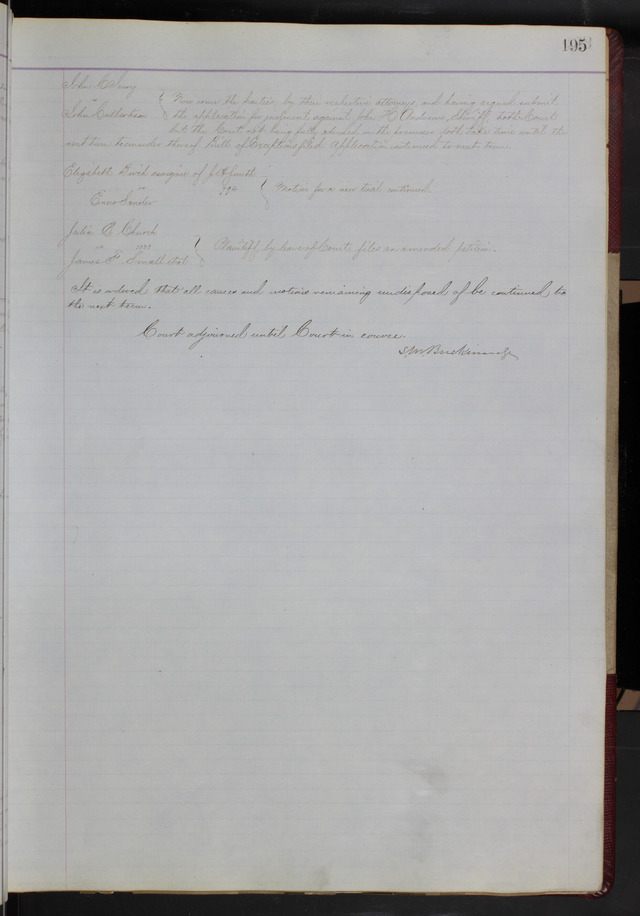 195
John C
vs
John
Now come the parties by their respective attorneys, and having argued submit
the application for judgment against John H Andrews, Sheriff, to the Court
but the Court not being fully advised in the premises doth take time until the
next term to consider thereof Bill of Exceptions filed Application continued to next term.
Elizabeth assignee of J A Smith
vs 794 Motion for a new trial continued
Julia E Church
vs Plaintiff by leave of Court, files an amended petition.
James P. Small et al
It is ordered that all causes and motions remaining undisposed of be continued to
the next term.
Court adjourned until Court in course.
S. M. Breckinridge